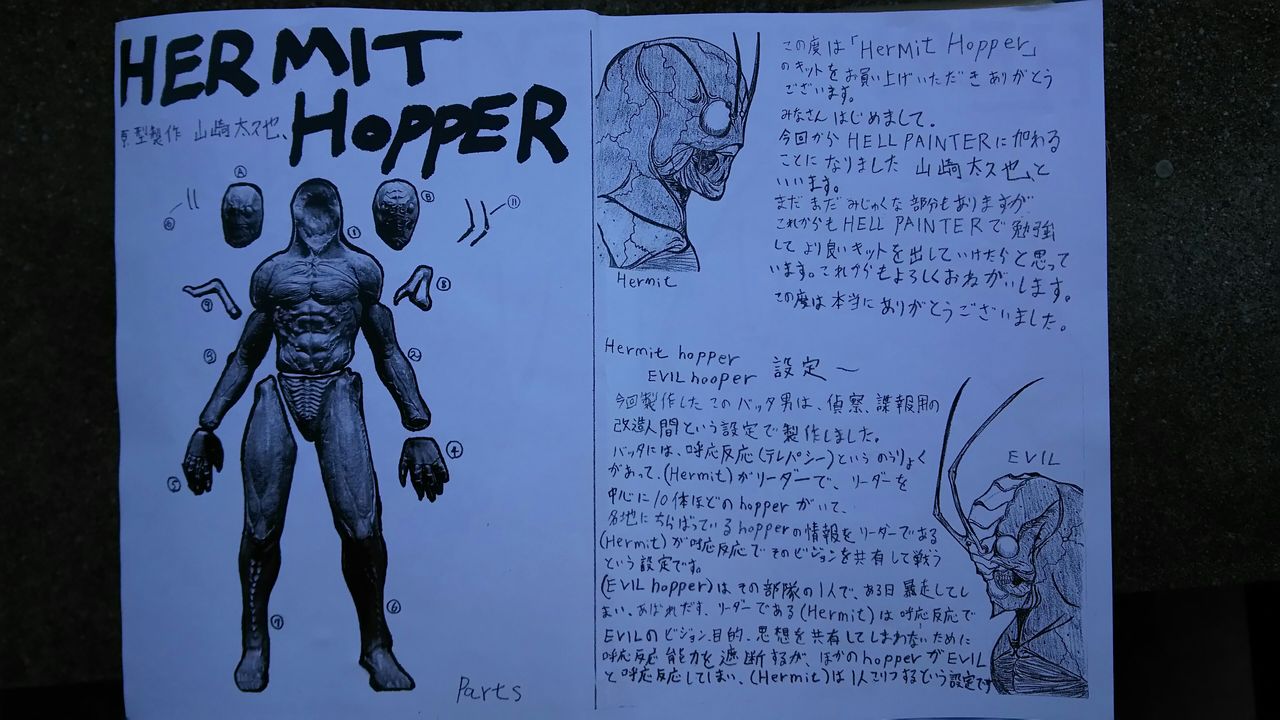 HERMIT
HOPPER
原型製作 山崎太久也、
Ⓐ
Ⓑ
①
②
③
④
⑤
⑥
⑦
⑧
⑨
⑪
Parts
この度は「HerMit Hopper」
のキットをお買い上げいただきありがとう
ございます。
みなさんはじめまして。
今回から HELL PAINTERに加わる
ことになりました 山崎太久也、と
いいます。
まだまだみじゅくな部分もありますが
これからもHELL PAINTERで勉強
してより良いキットを出していけたらと思って
います。これからもよろしくおねがいします。
この度は本当にありがとうございました。
Hermit
Hermit hopper
EVIL hooper 設定〜
今回製作したこのバッタ男は、偵察、諜報用の
改造人間という設定で製作しました。
バッタには、呼応反応(テレパシー)というのうりょく
があって、(Hermit)がリーダーで、リーダーを
中心に10体ほどのhopperがいて、
各地にちらばっているhopperの情報をリーダーである
(Hermit)が呼応反応でそのビジョンを共有して戦う
という設定です。
(EVIL hopper)はその部隊の1人で、ある日暴走してし
まい、あばれだす、リーダーである(Hermit)は呼応反応で
EVILのビジョン、目的、思想を共有してしまわないために
呼応反応能力を遮断するが、ほかのhopperがEVIL
と呼応反応してしまい、(Hermit)は1人で するという設定です
EVIL